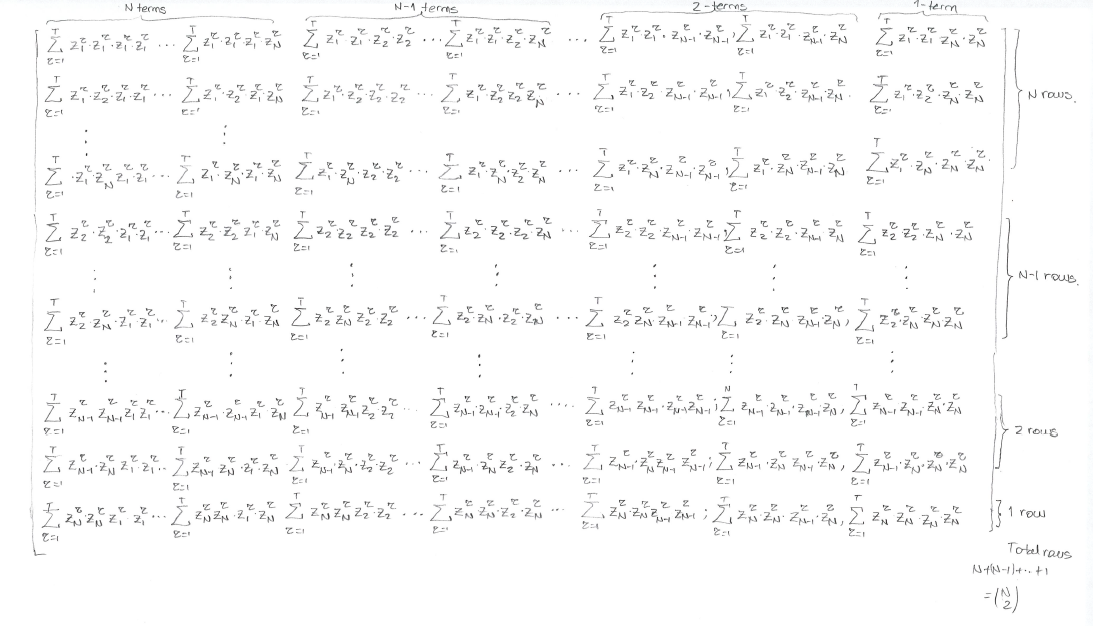 N terms N-1 terms 2-terms 1-term
[ ∑_{τ=1}^{T} z_1^τ·z_1^τ·z_1^τ·z_1^τ ... ∑_{τ=1}^{T} z_1^τ·z_1^τ·z_1^τ·z_N^τ ∑_{τ=1}^{T} z_1^τ·z_1^τ·z_2^τ·z_2^τ ... ∑_{τ=1}^{T} z_1^τ·z_1^τ·z_2^τ·z_N^τ ... ∑_{τ=1}^{T} z_1^τ·z_1^τ·z_{N-1}^τ·z_{N-1}^τ, ∑_{τ=1}^{T} z_1^τ·z_1^τ·z_{N-1}^τ·z_N^τ ∑_{τ=1}^{T} z_1^τ·z_1^τ z_N^τ·z_N^τ ]
∑_{τ=1}^{T} z_1^τ·z_2^τ·z_1^τ·z_1^τ ... ∑_{τ=1}^{T} z_1^τ·z_2^τ z_1^τ·z_N^τ ∑_{τ=1}^{T} z_1^τ·z_2^τ·z_2^τ·z_2^τ ... ∑_{τ=1}^{T} z_1^τ·z_2^τ z_2^τ z_N^τ ... ∑_{τ=1}^{T} z_1^τ·z_2^τ·z_{N-1}^τ·z_{N-1}^τ, ∑_{τ=1}^{T} z_1^τ·z_2^τ·z_{N-1}^τ·z_N^τ ∑_{τ=1}^{T} z_1^τ·z_2^τ·z_N^τ·z_N^τ } N rows.
⋮ ⋮
∑_{τ=1}^{T} z_1^τ z_N^τ z_1^τ·z_1^τ ... ∑_{τ=1}^{T} z_1^τ·z_N^τ·z_1^τ·z_N^τ ∑_{τ=1}^{T} z_1^τ·z_N^τ·z_2^τ·z_2^τ ... ∑_{τ=1}^{T} z_1^τ·z_N^τ·z_2^τ·z_N^τ ... ∑_{τ=1}^{T} z_1^τ·z_N^τ·z_{N-1}^τ·z_{N-1}^τ, ∑_{τ=1}^{T} z_1^τ·z_N^τ·z_{N-1}^τ·z_N^τ ∑_{τ=1}^{T} z_1^τ·z_N^τ·z_N^τ z_N^τ
∑_{τ=1}^{T} z_2^τ·z_2^τ·z_1^τ·z_1^τ ... ∑_{τ=1}^{T} z_2^τ·z_2^τ z_1^τ·z_N^τ ∑_{τ=1}^{T} z_2^τ z_2^τ z_2^τ z_2^τ ... ∑_{τ=1}^{T} z_2^τ·z_2^τ·z_2^τ·z_N^τ ... ∑_{τ=1}^{T} z_2^τ·z_2^τ·z_{N-1}^τ·z_{N-1}^τ, ∑_{τ=1}^{T} z_2^τ·z_2^τ·z_{N-1}^τ z_N^τ ∑_{τ=1}^{T} z_2^τ z_2^τ·z_N^τ·z_N^τ
⋮ ⋮ ⋮ ⋮ ⋮ ⋮ ⋮ } N-1 rows.
∑_{τ=1}^{T} z_2^τ z_N^τ·z_1^τ·z_1^τ ... ∑_{τ=1}^{T} z_2^τ z_N^τ·z_1^τ·z_N^τ ∑_{τ=1}^{T} z_2^τ z_N^τ z_2^τ·z_2^τ ... ∑_{τ=1}^{T} z_2^τ·z_N^τ·z_2^τ·z_N^τ ... ∑_{τ=1}^{T} z_2^τ z_N^τ·z_{N-1}^τ z_{N-1}^τ, ∑_{τ=1}^{T} z_2^τ·z_N^τ z_{N-1}^τ·z_N^τ, ∑_{τ=1}^{T} z_2^τ·z_N^τ z_N^τ z_N^τ
⋮ ⋮ ⋮ ⋮ ⋮ ⋮
∑_{τ=1}^{T} z_{N-1}^τ z_{N-1}^τ z_1^τ z_1^τ ... ∑_{τ=1}^{T} z_{N-1}^τ·z_{N-1}^τ z_1^τ z_N^τ ∑_{τ=1}^{T} z_{N-1}^τ z_{N-1}^τ z_2^τ z_2^τ ... ∑_{τ=1}^{T} z_{N-1}^τ·z_{N-1}^τ z_2^τ·z_N^τ .... ∑_{τ=1}^{T} z_{N-1}^τ z_{N-1}^τ·z_{N-1}^τ z_{N-1}^τ; ∑_{τ=1}^{N} z_{N-1}^τ·z_{N-1}^τ·z_{N-1}^τ z_N^τ, ∑_{τ=1}^{T} z_{N-1}^τ z_{N-1}^τ z_N^τ·z_N^τ
∑_{τ=1}^{T} z_{N-1}^τ·z_N^τ z_1^τ·z_1^τ ... ∑_{τ=1}^{T} z_{N-1}^τ z_N^τ·z_1^τ·z_N^τ ∑_{τ=1}^{T} z_{N-1}^τ·z_N^τ·z_2^τ·z_2^τ ... ∑_{τ=1}^{T} z_{N-1}^τ·z_N^τ z_2^τ·z_N^τ ... ∑_{τ=1}^{T} z_{N-1}^τ·z_N^τ z_{N-1}^τ z_{N-1}^τ; ∑_{τ=1}^{T} z_{N-1}^τ·z_N^τ z_{N-1}^τ·z_N^τ, ∑_{τ=1}^{T} z_{N-1}^τ·z_N^τ·z_N^τ z_N^τ } 2 rows
∑_{τ=1}^{T} z_N^τ·z_N^τ z_1^τ·z_1^τ ... ∑_{τ=1}^{T} z_N^τ z_N^τ·z_1^τ·z_N^τ ∑_{τ=1}^{T} z_N^τ z_N^τ z_2^τ·z_2^τ ... ∑_{τ=1}^{T} z_N^τ z_N^τ·z_2^τ·z_N^τ ... ∑_{τ=1}^{T} z_N^τ·z_N^τ z_{N-1}^τ z_{N-1}^τ; ∑_{τ=1}^{T} z_N^τ·z_N^τ·z_{N-1}^τ·z_N^τ, ∑_{τ=1}^{T} z_N^τ z_N^τ·z_N^τ z_N^τ } 1 row
Total rows
N+(N-1)+..+1
=(N 2)